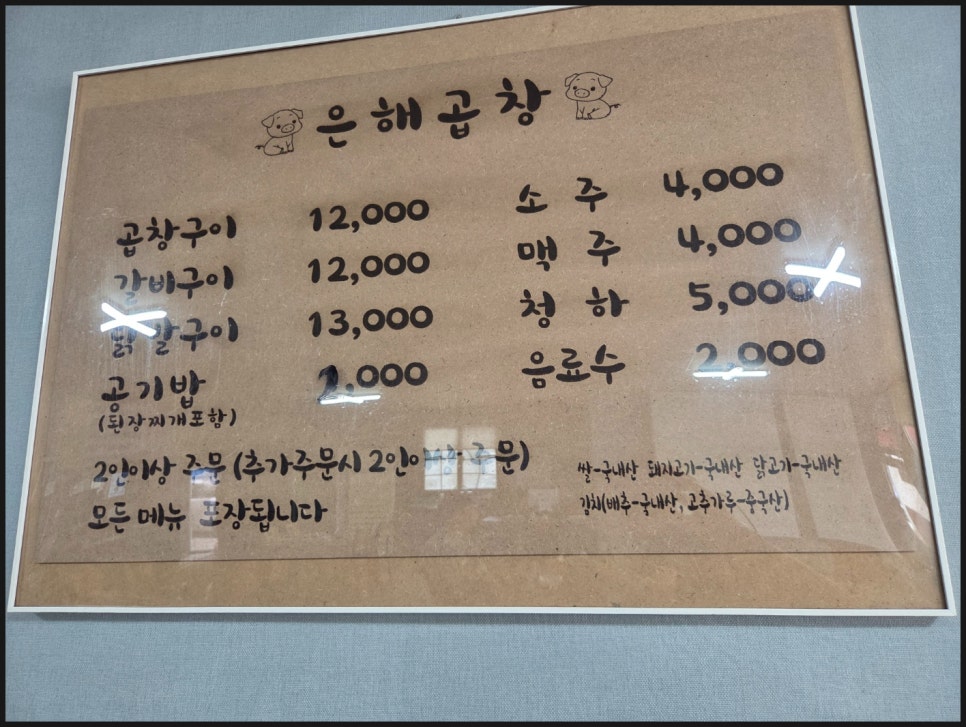 은해곱창
곱창구이 12,000
갈비구이 12,000
닭갈구이 13,000
공기밥 2,000
(된장찌개포함)
소 주 4,000
맥 주 4,000
청 하 5,000
음료수 2,000
2인이상 주문 (추가주문시 2인이상 주문)
모든 메뉴 포장됩니다
쌀-국내산 돼지고기-국내산 닭고기-국내산
김치(배추-국내산, 고추가루-중국산)